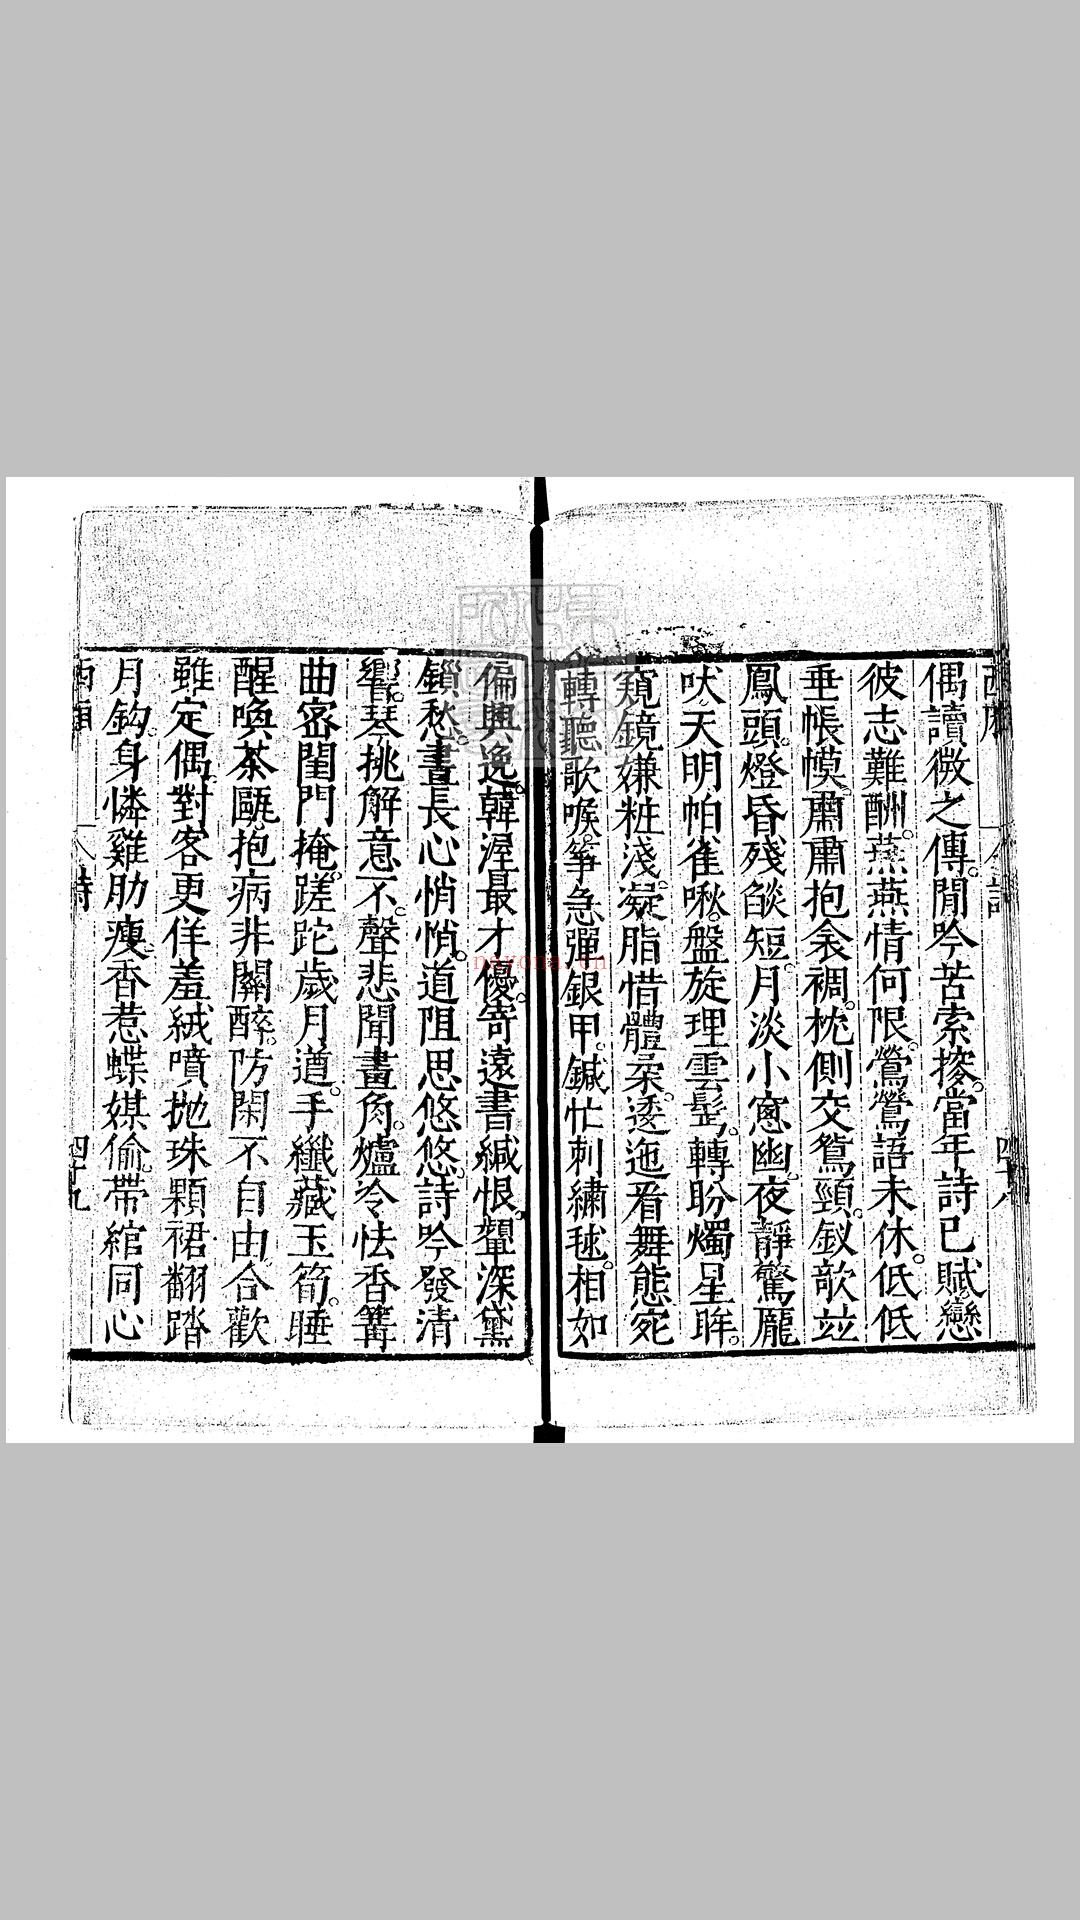 偶讀微之傳。閒吟苦索搜。當年詩已賦。戀
彼志難酬。燕燕情何限。鶯鶯語未休。低低
垂帳幙。肅肅抱衾裯。枕側交鴛頸。釵歆並
鳳頭。燈昏殘燄短。月淡小窓幽。夜靜驚厖
吠。天明怕雀啾。盤旋理雲髩。轉盼燭星眸。
窺鏡嫌粧淺。凝脂惜體柔。逶迤看舞態。宛
轉聽歌喉。箏急彈銀甲。鍼忙刺繡毬。相如
偏興逸。韓渥最才優。寄遠書緘恨。顰深黛
鎖愁。晝長心悄悄。道阻思悠悠。詩吟發清
響。琴挑解意不。聲悲聞畫角。爐冷怯香篝
曲密閨門掩。蹉跎歲月遒。手纖藏玉筍。睡
醒喚茶甌。抱病非關醉。防閑不自由。合歡
雖定偶。對客更佯羞。絨噴拋珠顆。裙翻踏
月鈎。身憐雞肋瘦。香惹蝶媒偷。帶綰同心
詩
四十九
nayona.cn